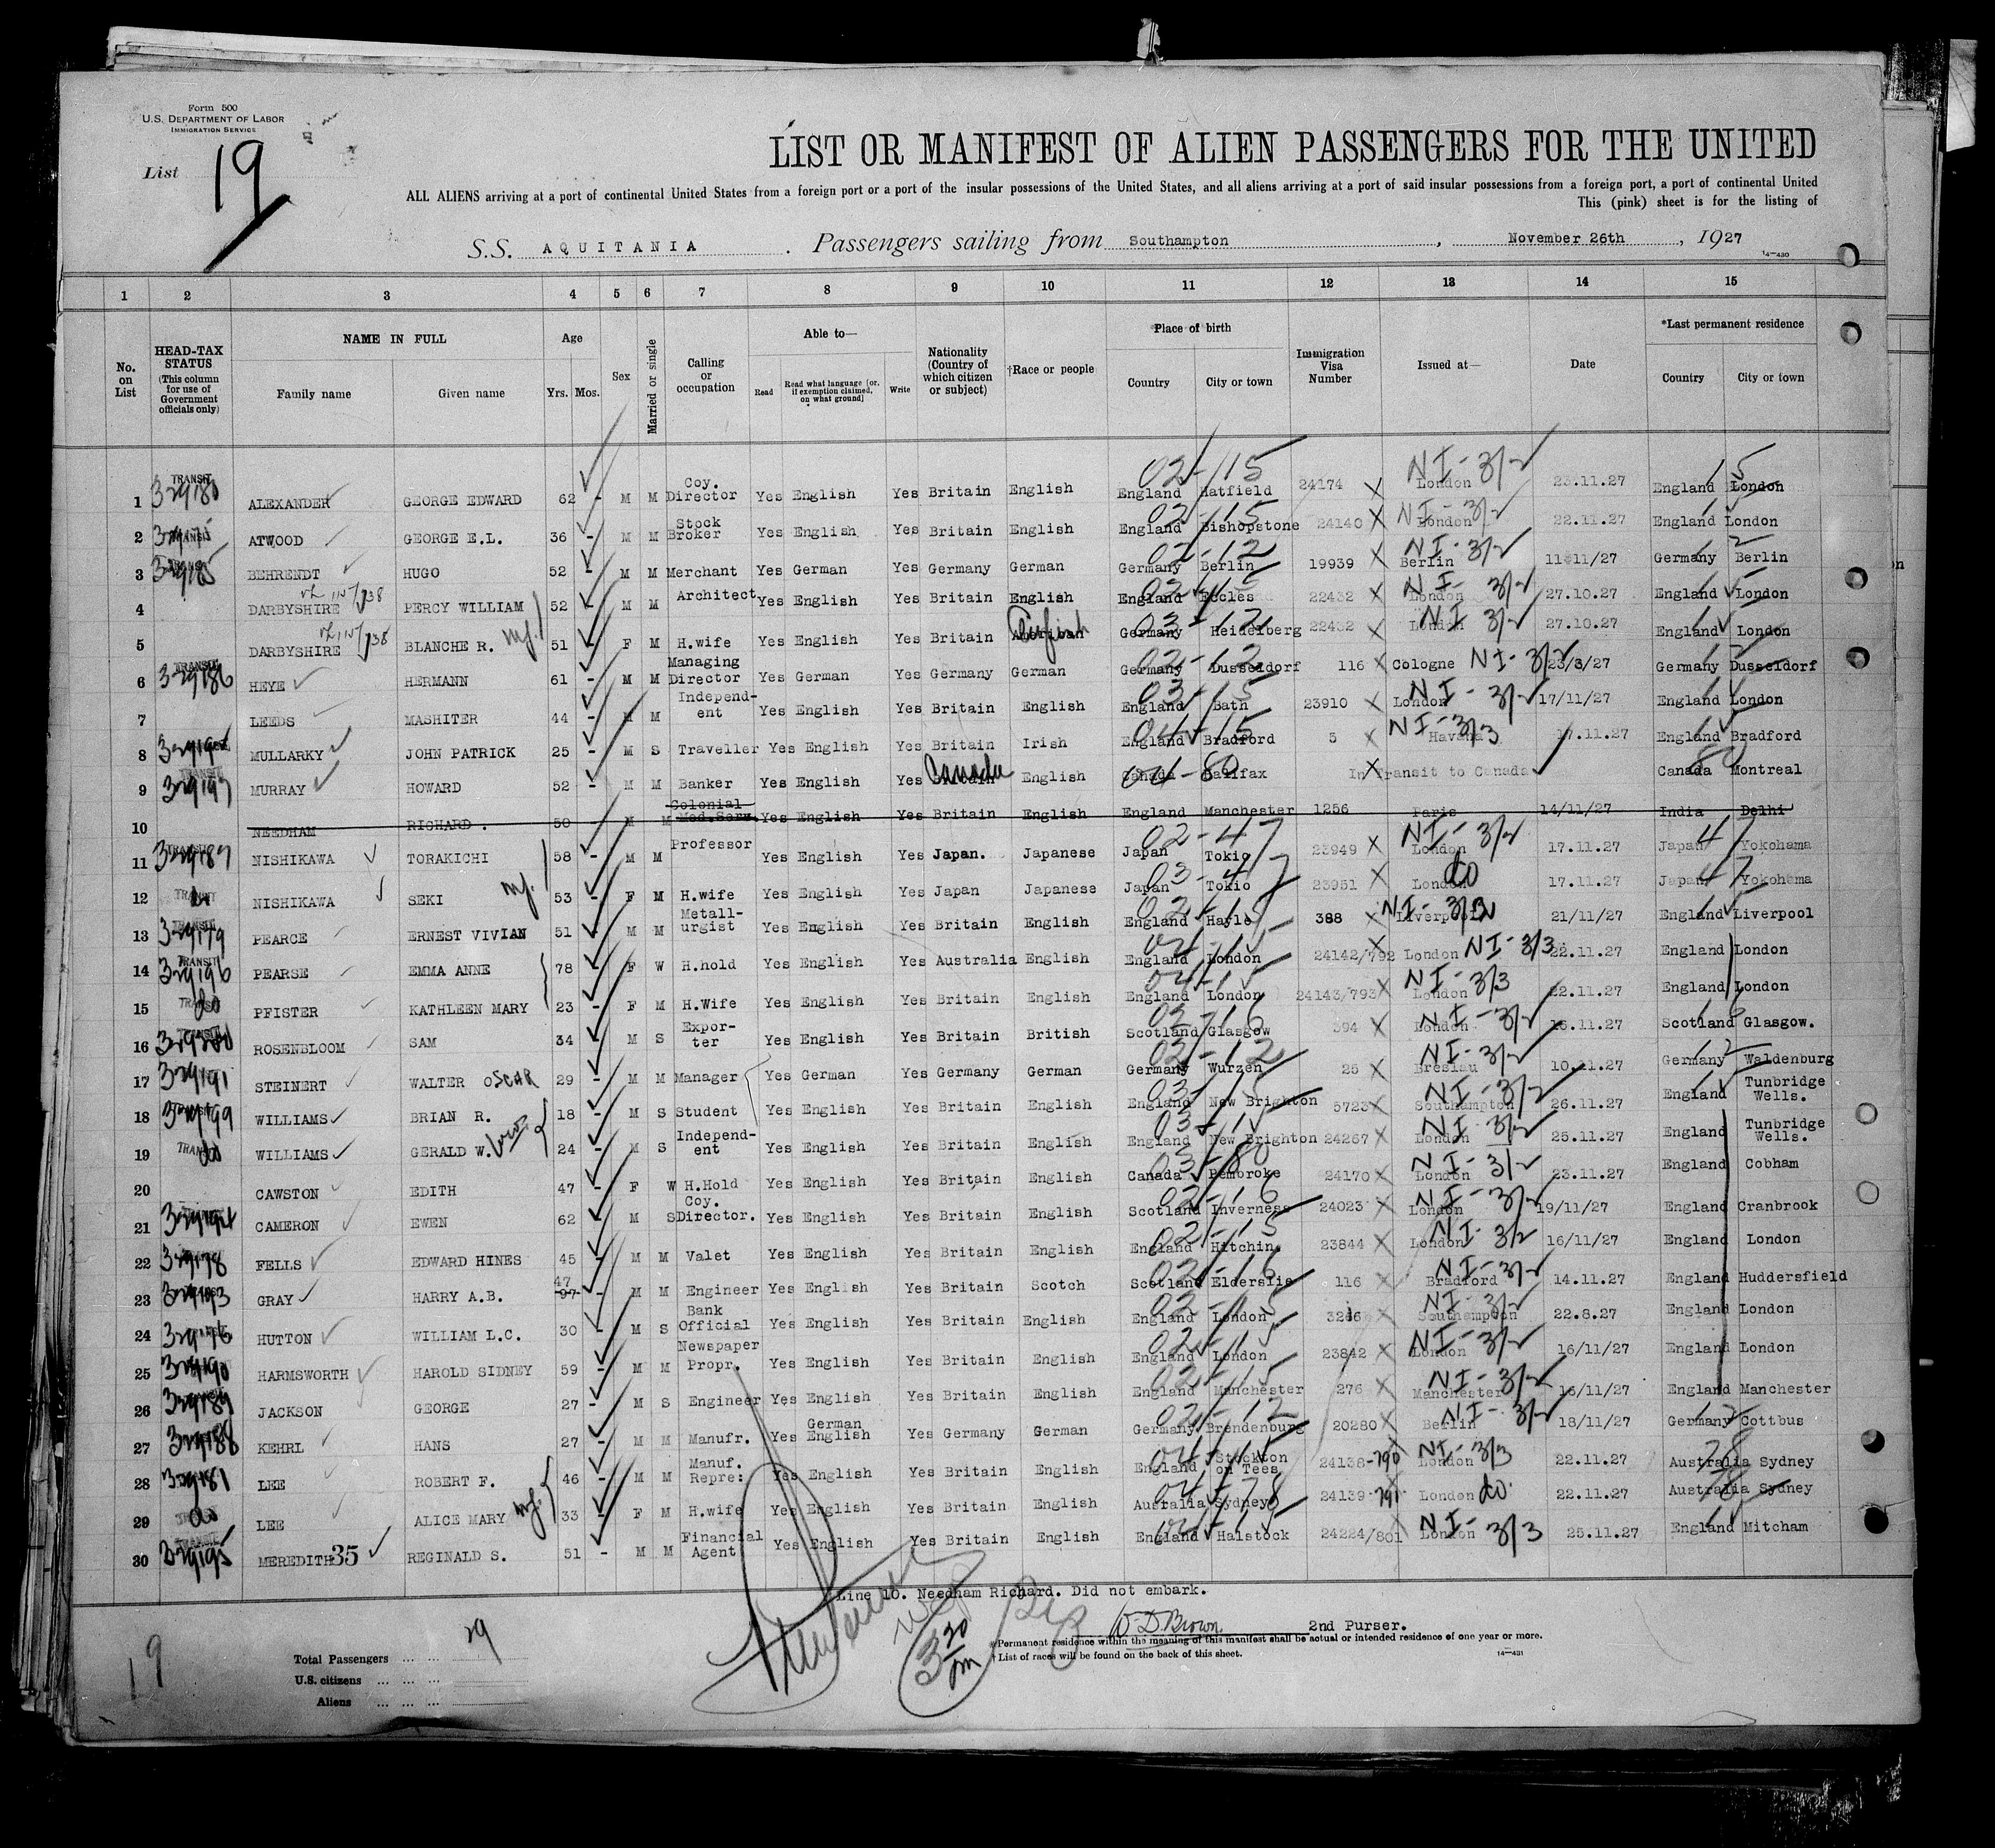 Form 500
U.S. DEPARTMENT OF LABOR
IMMIGRATION SERVICE
List 19
LIST OR MANIFEST OF ALIEN PASSENGERS FOR THE UNITED
ALL ALIENS arriving at a port of continental United States from a foreign port or a port of the insular possessions of the United States, and all aliens arriving at a port of said insular possessions from a foreign port, a port of continental United
This (pink) sheet is for the listing of
S.S. AQUITANIA . Passengers sailing from Southampton , November 26th , 1927
14—430
1 2 3 4 5 6 7 8 9 10 11 12 13 14 15
No. on List
HEAD-TAX STATUS (This column for use of Government officials only)
NAME IN FULL Family name Given name
Age Yrs. Mos.
Sex
Married or single
Calling or occupation
Able to— Read Read what language [or, if exemption claimed, on what ground] Write
Nationality (Country of which citizen or subject)
†Race or people
Place of birth Country City or town
Immigration Visa Number
Issued at—
Date
*Last permanent residence Country City or town
1 TRANSIT 329180 ALEXANDER GEORGE EDWARD 62 - M M Coy. Director Yes English Yes Britain English England Hatfield 02-15 24174 London NI-3/2 23.11.27 England London 15
2 ATWOOD GEORGE E.L. 36 - M M Stock Broker Yes English Yes Britain English England Bishopstone 02-15 24140 London NI-3/2 22.11.27 England London
3 BEHRENDT HUGO 52 - M M Merchant Yes German Yes Germany German Germany Berlin 02-12 19939 Berlin NI-3/2 11/11/27 Germany Berlin 12
4 DARBYSHIRE PERCY WILLIAM 52 - M M Architect Yes English Yes Britain English England Eccles 02-15 22432 London NI-3/2 27.10.27 England London
5 DARBYSHIRE BLANCHE R. 51 - F M H.wife Yes English Yes Britain English Germany Heidelberg 03-12 22432 London NI 3/2 27.10.27 England London
6 TRANSIT 329186 HEYE HERMANN 61 - M M Managing Director Yes German Yes Germany German Germany Dusseldorf 02-12 116 Cologne NI-3/2 23/8/27 Germany Dusseldorf
7 LEEDS MASHITER 44 - M M Independent Yes English Yes Britain English England Bath 03-15 23910 London NI-3/2 17/11/27 England London
8 MULLARKY JOHN PATRICK 25 - M S Traveller Yes English Yes Britain Irish England Bradford 04-15 5 Havana NI-3/3 17.11.27 England Bradford
9 TRANSIT 329197 MURRAY HOWARD 52 - M M Banker Yes English Yes Canada English Canada Halifax 04-80 In Transit to Canada Canada Montreal 80
10 NEEDHAM RICHARD . 50 - M M Colonial Med.Serv. Yes English Yes Britain English England Manchester 1256 Paris 14/11/27 India Delhi
11 TRANSIT 329187 NISHIKAWA TORAKICHI 58 - M M Professor Yes English Yes Japan. Japanese Japan Tokio 02-47 23949 London NI-3/2 17.11.27 Japan Yokohama 47
12 TRANSIT do NISHIKAWA SEKI 53 - F M H.wife Yes English Yes Japan Japanese Japan Tokio 03-47 23951 London do 17.11.27 Japan Yokohama 47
13 TRANSIT 329179 PEARCE ERNEST VIVIAN 51 - M M Metallurgist Yes English Yes Britain English England Hayle 02-15 388 Liverpool NI-3/2 21/11/27 England Liverpool
14 TRANSIT 329196 PEARSE EMMA ANNE 78 - F W H.hold Yes English Yes Australia English England London 04-15 24142/792 London NI-3/3 22.11.27 England London
15 TRANSIT do PFISTER KATHLEEN MARY 23 - F M H.Wife Yes English Yes Britain English England London 04-15 24143/793 London NI-3/3 22.11.27 England London
16 ROSENBLOOM SAM 34 - M S Exporter Yes English Yes Britain British Scotland Glasgow 02-16 394 London NI-3/2 Scotland Glasgow. 16
17 329191 STEINERT WALTER OSCAR 29 - M M Manager Yes German Yes Germany German Germany Wurzen 02-12 25 Breslau NI-3/2 10.11.27 Germany Waldenburg 12
18 329199 WILLIAMS BRIAN R. 18 - M S Student Yes English Yes Britain English England New Brighton 03-15 5723 Southampton NI-3/2 26.11.27 England Tunbridge Wells.
19 TRANSIT do WILLIAMS GERALD W. 24 - M S Independent Yes English Yes Britain English England New Brighton 03-15 24267 London NI-3/2 25.11.27 England Tunbridge Wells.
20 CAWSTON EDITH 47 - F W H.Hold Yes English Yes Britain English Canada Pembroke 03-80 24170 London NI-3/2 23.11.27 England Cobham
21 CAMERON EWEN 62 - M S Coy. Director. Yes English Yes Britain English Scotland Inverness 02-16 24023 London NI-3/2 19/11/27 England Cranbrook
22 329178 FELLS EDWARD HINES 45 - M M Valet Yes English Yes Britain English England Hitchin 02-15 23844 London NI-3/2 16/11/27 England London
23 GRAY HARRY A.B. 47 - M M Engineer Yes English Yes Britain Scotch Scotland Elderslie 02-16 116 Bradford NI-3/2 14.11.27 England Huddersfield
24 HUTTON WILLIAM L.C. 30 - M S Bank Official Yes English Yes Britain English England London 02-15 3266 Southampton NI-3/2 22.8.27 England London
25 329190 HARMSWORTH HAROLD SIDNEY 59 - M M Newspaper Propr. Yes English Yes Britain English England London 02-15 23842 London NI-3/2 16/11/27 England London
26 329189 JACKSON GEORGE 27 - M S Engineer Yes English Yes Britain English England Manchester 02-15 276 Manchester NI-3/2 16/11/27 England Manchester
27 329188 KEHRL HANS 27 - M M Manufr. Yes German English Yes Germany German Germany Brendenburg 02-12 20280 Berlin NI-3/2 18/11/27 Germany Cottbus 12
28 329181 LEE ROBERT F. 46 - M M Manuf. Repre: Yes English Yes Britain English England Stockton on Tees 04-15 24138-790 London NI-3/3 22.11.27 Australia Sydney 78
29 do LEE ALICE MARY 33 - F M H.wife Yes English Yes Britain English Australia Sydney 04-78 24139-791 London do. 22.11.27 Australia Sydney 78
30 TRANSIT 329195 MEREDITH 35 REGINALD S. 51 - M M Financial Agent Yes English Yes Britain English England Halstock 04-15 24224/801 London NI-3/3 25.11.27 England Mitcham
Line 10. Needham Richard. Did not embark.
W.D.Brown 2nd Purser.
19
29
3 30 pm
Total Passengers ... ...
U.S. citizens ... ... ...
Aliens ... ... ...
*Permanent residence within the meaning of this manifest shall be actual or intended residence of one year or more.
†List of races will be found on the back of this sheet.
14—431